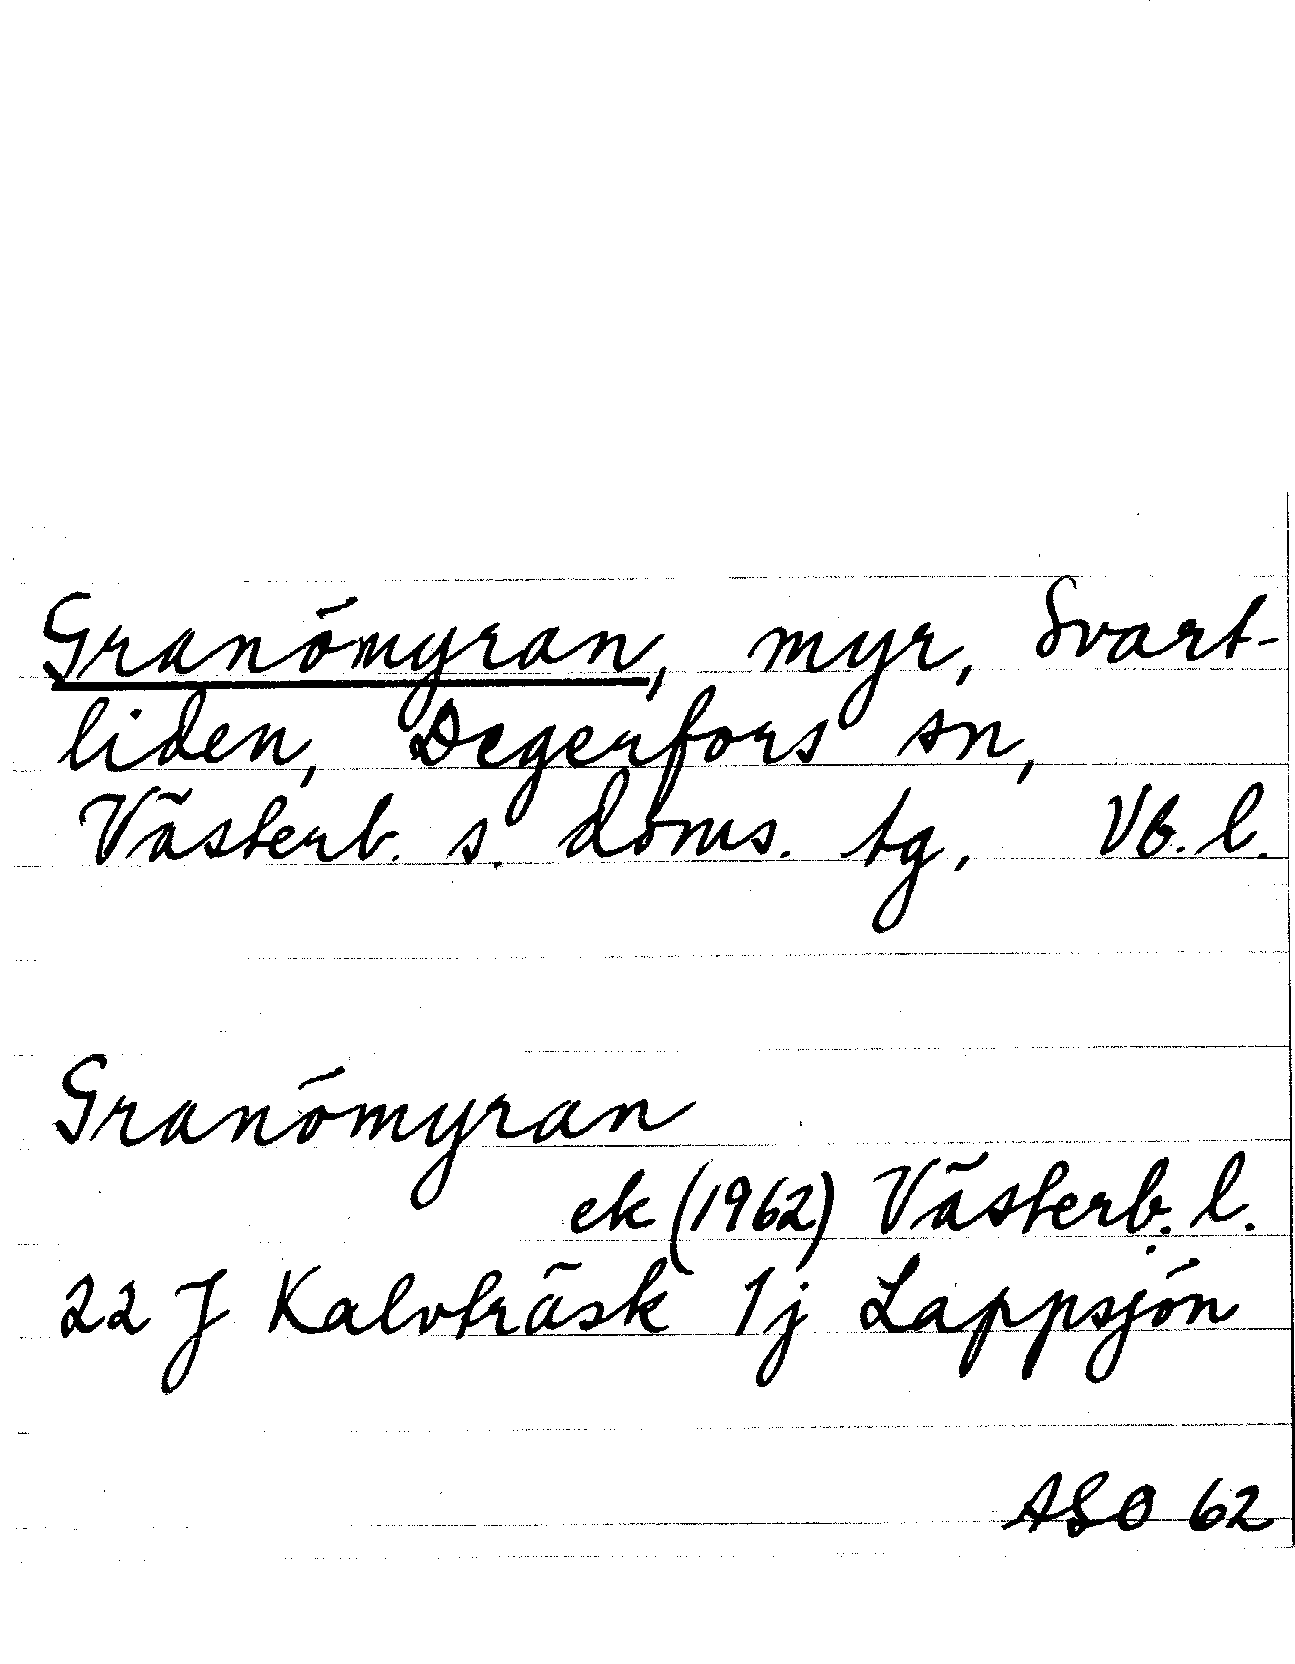 Granömyran, myr, Svart-
liden, Degerfors sn,
Västerb. s. doms. tg, Vb. l.
Granömyran
ek (1962) Västerb. l.
22 J Kalvträsk 1j Lappsjön
ASO 62